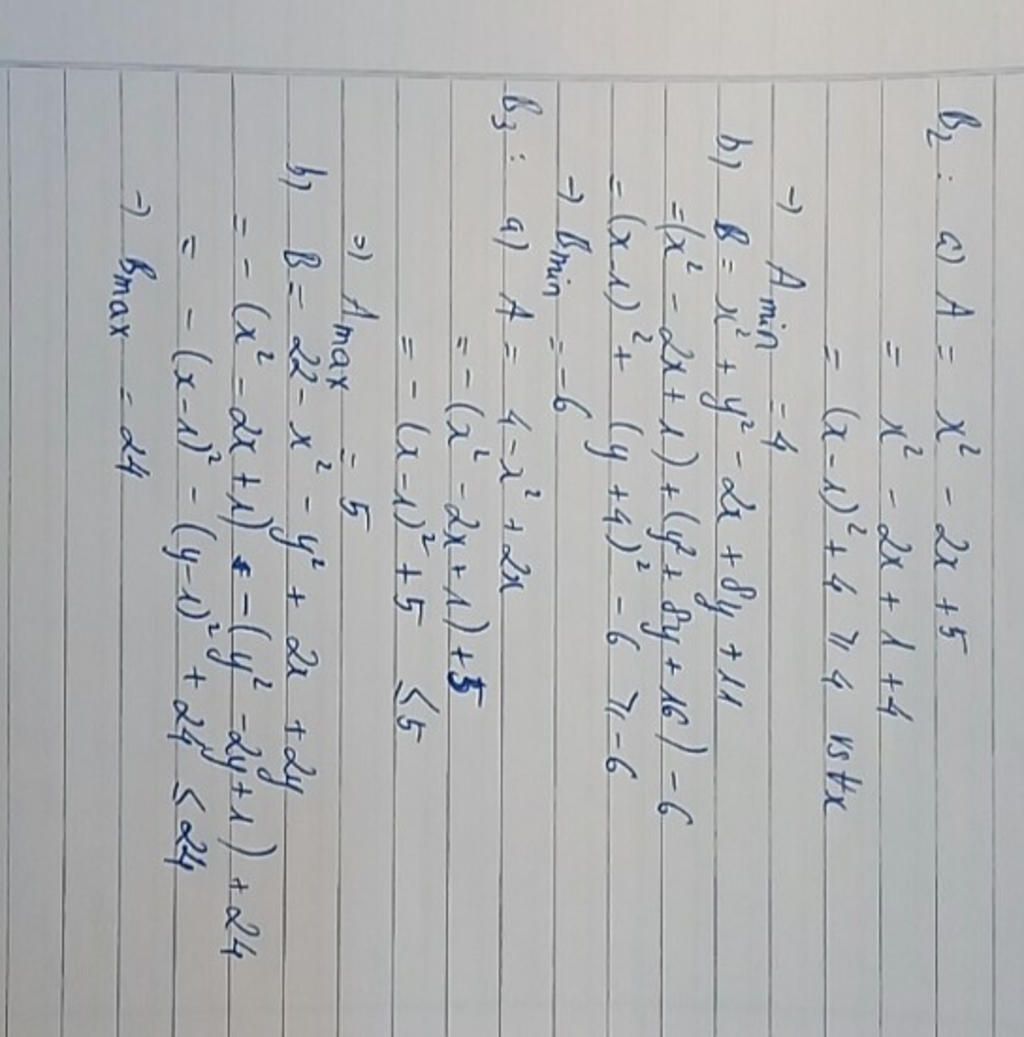 B₂ : a) A = x² - 2x + 5
= x² - 2x + 1 + 4
= (x - 1)² + 4 ⩾ 4 với ∀x
→ A min = 4
b) B = x² + y² - 2x + 8y + 11
= (x² - 2x + 1) + (y² + 8y + 16) - 6
= (x - 1)² + (y + 4)² - 6 ⩾ -6
→ B min = -6
B₃ : a) A = 4 - x² + 2x
= - (x² - 2x + 1) + 5
= - (x - 1)² + 5 ≤ 5
⇒ A max = 5
b) B = 22 - x² - y² + 2x + 2y
= - (x² - 2x + 1) - (y² - 2y + 1) + 24
= - (x - 1)² - (y - 1)² + 24 ≤ 24
→ B max = 24